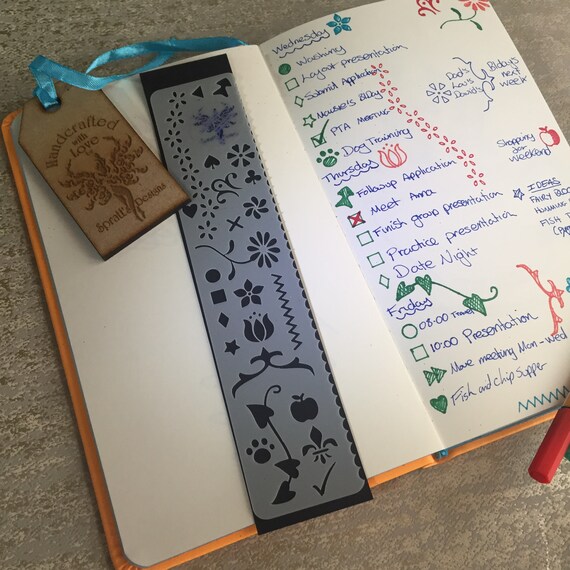 Handcrafted
with
Love
Spratt Designs
Wednesday
Washing
Layout presentation
Submit Application
Mousie's BDays
PTA MEETING
Dog Training
Thursday
Followup Application
Meet Anna
Finish group presentation
Practice presentation
Date Night
Friday
08:00 Travel
10:00 Presentation
Move meeting Mon - Wed
Fish and chip supper
Dad's
Lou's
David's
BDays
next
week
Shopping
for
weekend
IDEAS
FAIRY
HUMMING
FISH